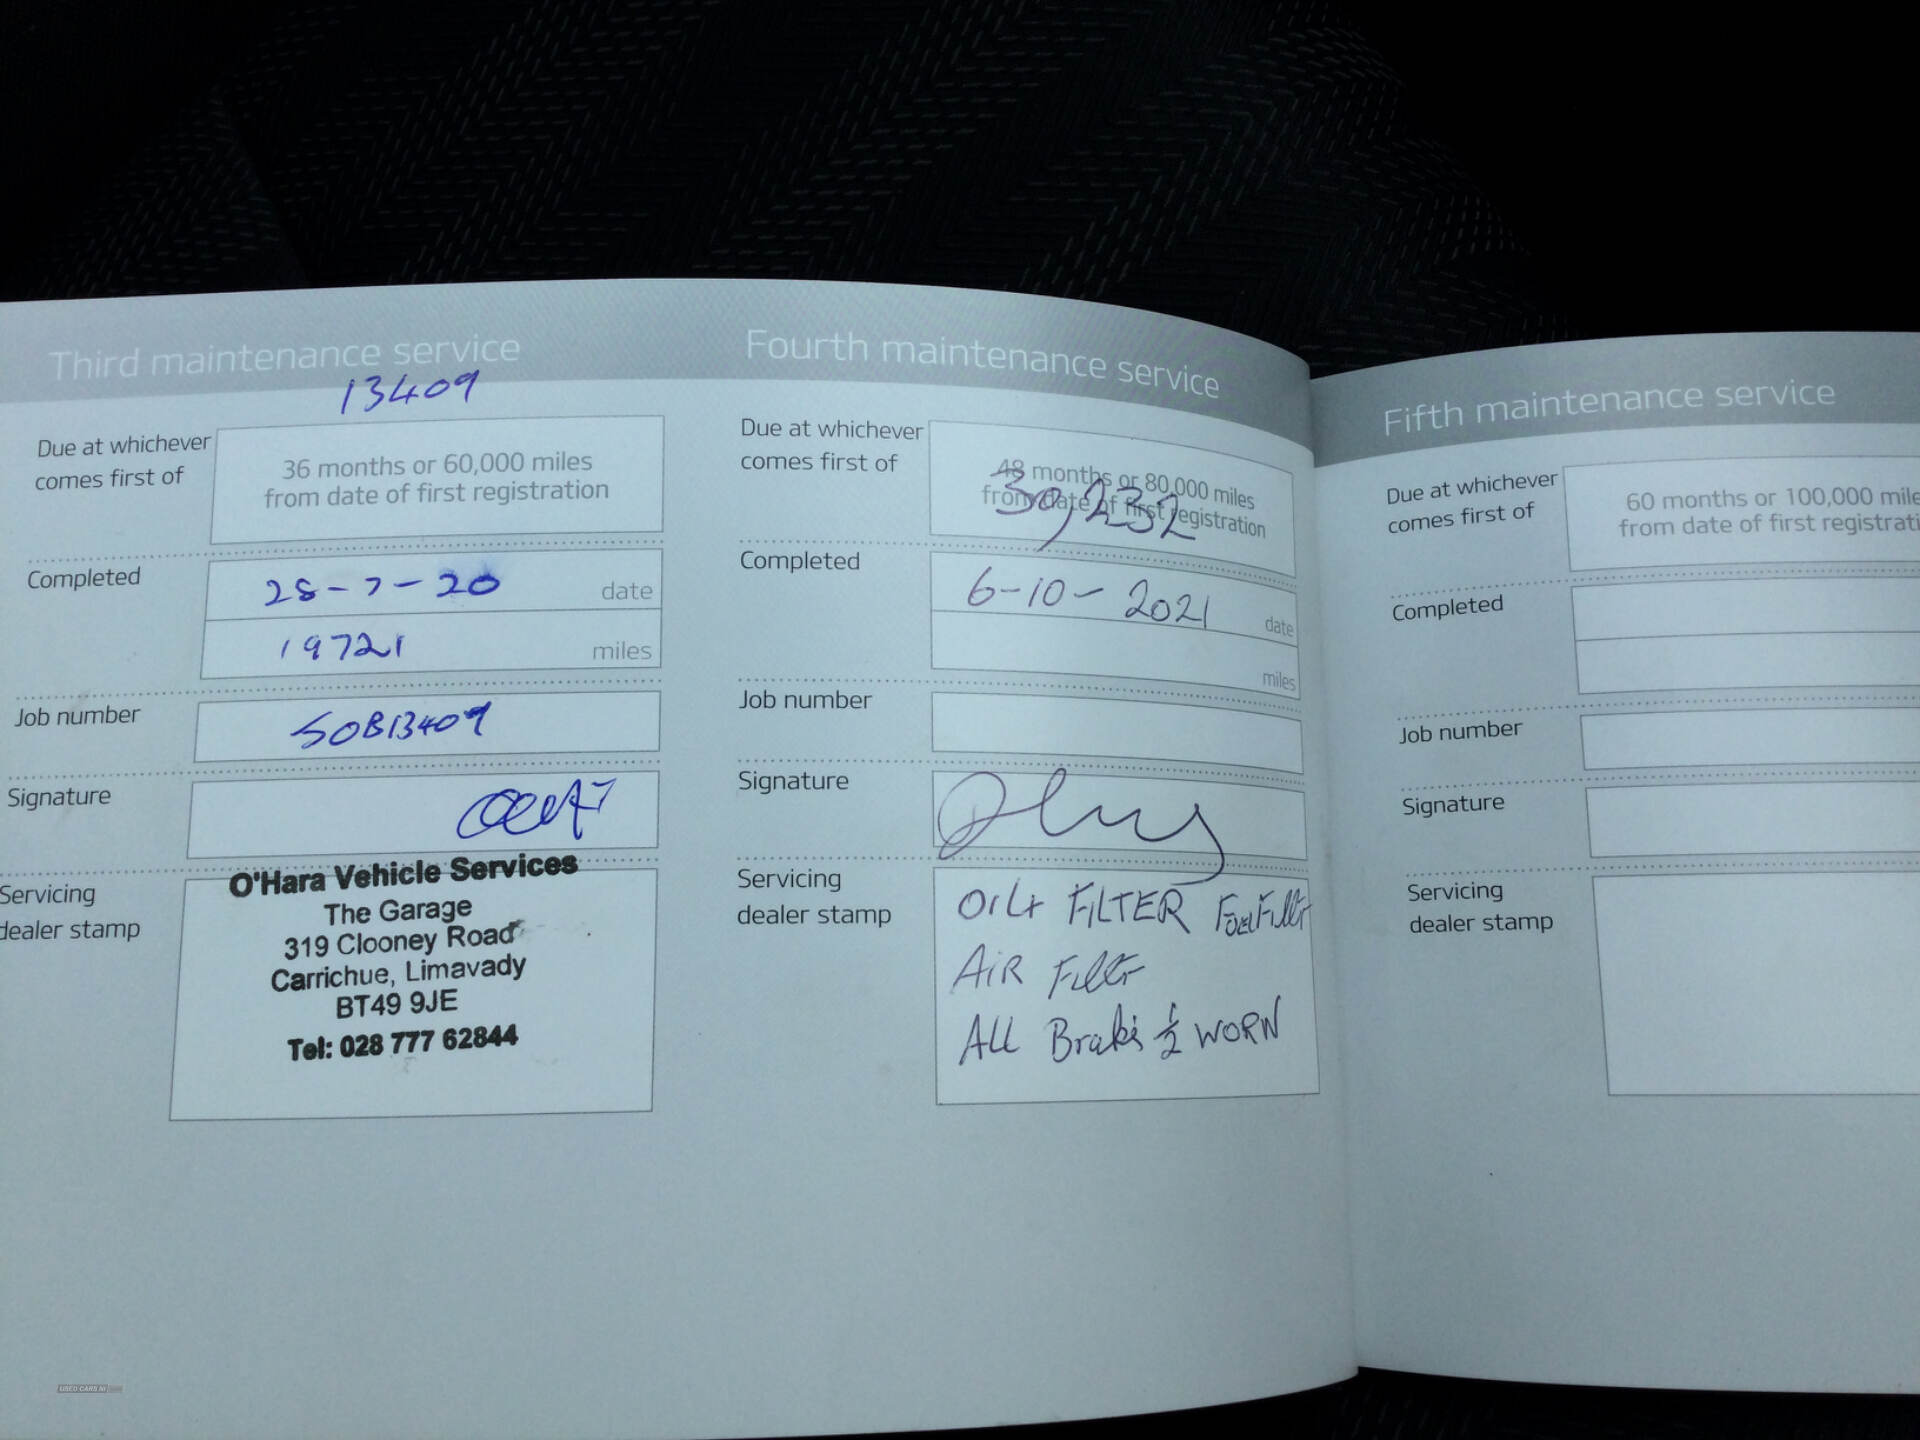 Third maintenance service
13409
Due at whichever
comes first of
36 months or 60,000 miles
from date of first registration
Completed
28-7-20 date
19721 miles
Job number
SOB13409
Signature
Servicing
dealer stamp
O'Hara Vehicle Services
The Garage
319 Clooney Road
Carrichue, Limavady
BT49 9JE
Tel: 028 777 62844
Fourth maintenance service
Due at whichever
comes first of
48 months or 80,000 miles
from date of first registration
30,232
Completed
6-10-2021 date
miles
Job number
Signature
Servicing
dealer stamp
OIL+ FILTER Fuel Filtr
AiR Filtr
ALL Brakes 1/2 WORN
Fifth maintenance service
Due at whichever
comes first of
60 months or 100,000 mile
from date of first registrati
Completed
Job number
Signature
Servicing
dealer stamp
USED CARS NI